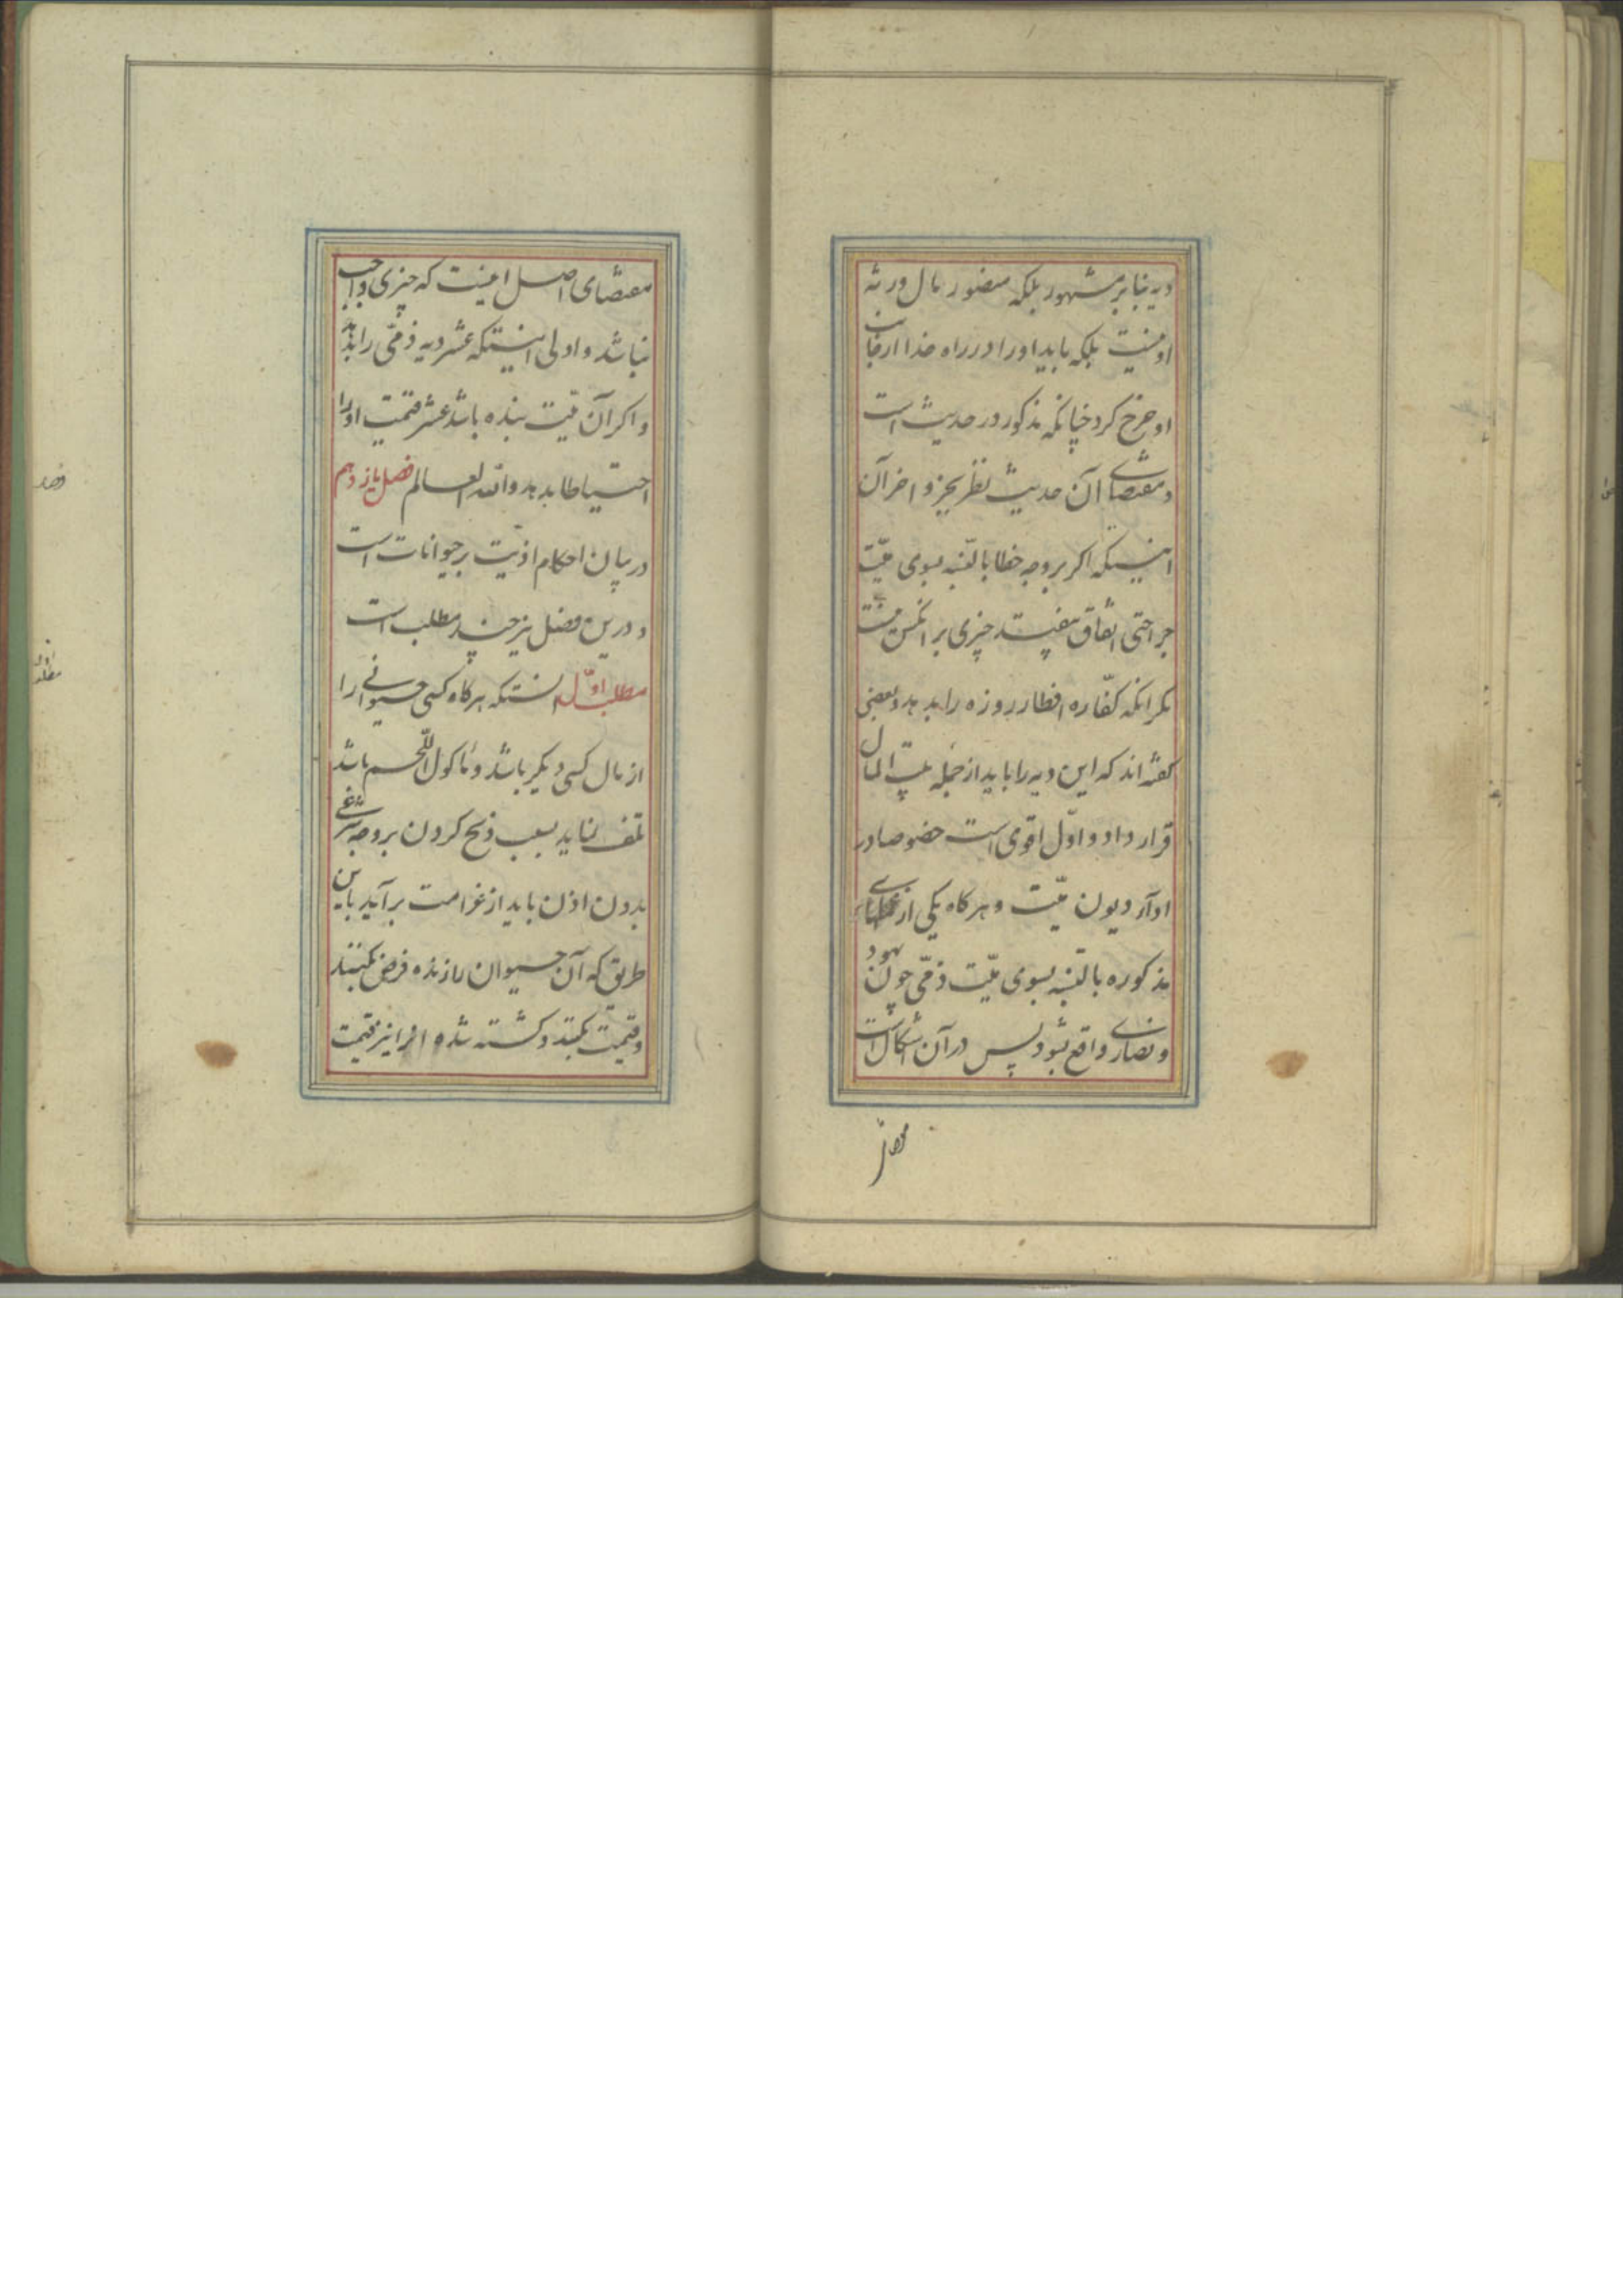 دیه بنا بر مشهور بلکه منصور مال ورثه
او نیست بلکه باید او را در راه خدا از جانب
او خرج کرد چنانکه مذکور در حدیث است
و مقتضای آن حدیث نظر بجزو اخر آن
اینستکه اکر بر وجه خطا بالنسبه بسوی میّت
جراحتی اتفاق بیفتد چیزی بر انکس نیست
مکر انکه کفّاره افطار روزه را بدهد و بعضی
کفته اند که این دیه را باید از جمله بیت المال
قرار داد و اوّل اقوی است خصوصا در
ادآء دیون میّت و هر کاه یکی از
مذکوره بالنسبه بسوی میّت ذمّی چون یهود
و نصاری واقع شود پس در آن اشکال است
مقتضای اصل اینست که چیزی واجب
نباشد و اولی اینستکه عشر دیه ذمّی را بدهد
و اکر آن میّت بنده باشد عشر قیمت او را
احتیاطا بدهد والله العالم فصل یازدهم
در بیان احکام اذیّت بر حیوانات است
و درین فصل نیز چند مطلب است
مطلب اوّل انستکه هر کاه کسی حیوانی را
از مال کسی دیکر باشد و مأکول اللّحم باشد
تلف نماید بسبب ذبح کردن بر وجه شرعی
بدون اذن باید از غرامت برآید باین
طریق که آن حیوان را زنده فرض بکنند
و قیمت بکنند و کشته شده او را نیز قیمت